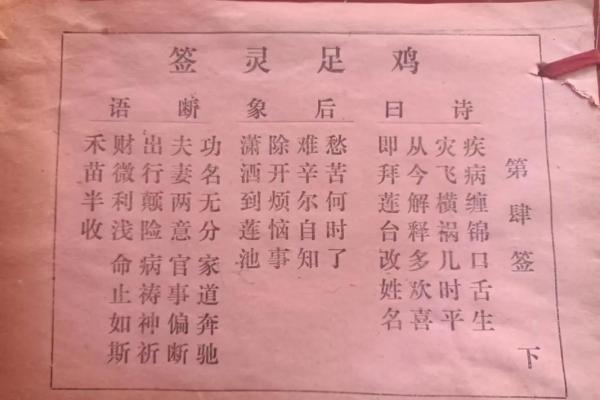 鸡足灵签
第肆签 下
诗曰
疾病缠锦口舌生
灾飞横祸儿时平
从今解释多欢喜
即拜莲台改姓名
后象
愁苦何时了
难辛尔自知
除开烦恼事
潇洒到莲池
断语
功名无分 家道奔驰
夫妻两意 官事偏断
出行颠险 病祷神祈
财微利浅 命止如斯
禾苗半收